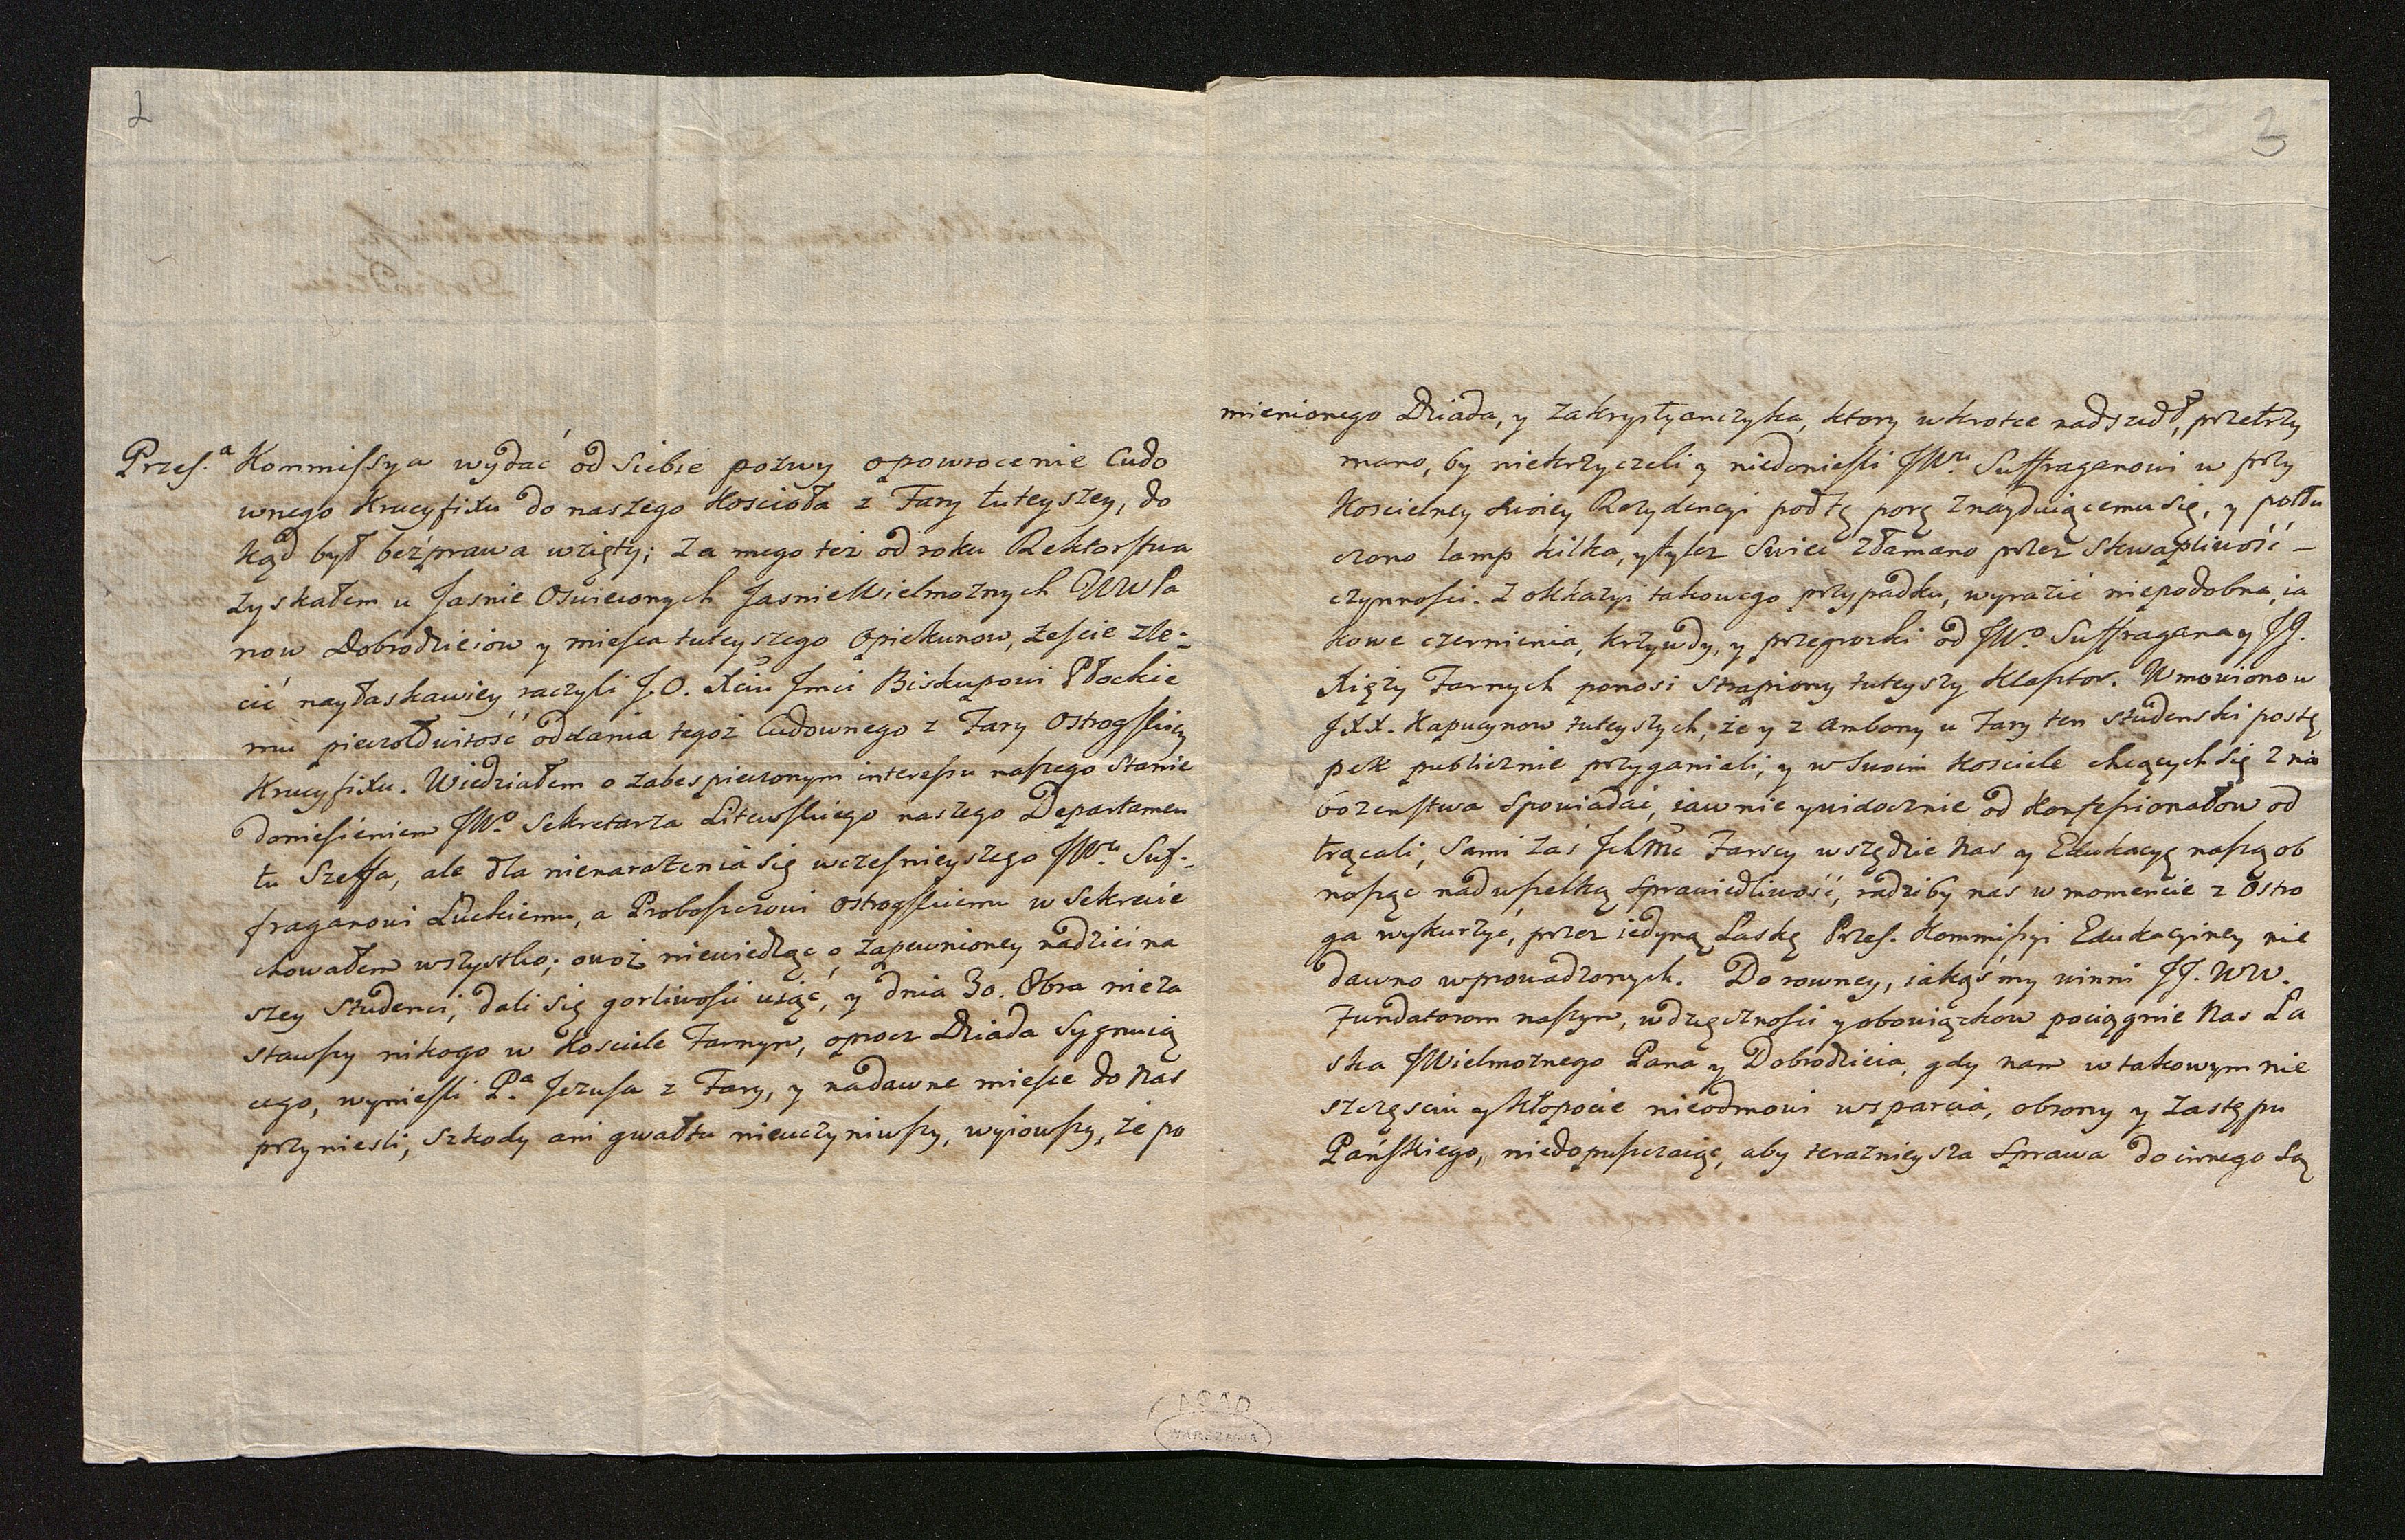 2
Przes.ª Kommissya wydać od siebie pozwy opowrocenie Cudo
wnego Krucyfixu do naszego Kościoła z Fary tuteyszey, do
kąd był beźprawa wzięty; za mego też od roku Rektorstwa
zyskałem u Jasnie Oswieconych JasnieWielmoznych WWPa
now Dobrodzieiow y mieysca tuteyszego Opiekunow, żeście zle-
cić nayłaskawiey raczyli J.O. Xciu Jmci Biskupowi Płockie
mu pieczołowitość oddania tegoż Cudownego z Fary Ostrogskiey
Krucyfixu. Wiedziałem o zabespieczonym interessu naszego stanie
doniesieniem JWº. Sekretarza Litewskiego naszego Departamen
tu Szeffa, ale dla nienarażenia się wcześnieyszego JWu. Suf-
fraganowi Łuckiemu, a Proboszczowi Ostrogskiemu w Sekrecie
chowałem wszystko; owoż niewiedząc o zapewnioney nadziei na
szey Studenci, dali się gorliwości uiąć, y dnia 30. 8bra nieza
stawszy nikogo w Kosciele Farnym, oprocz Dziada Sygnuią
cego, wynieśli P.ª Jezusa z Fary, y nadawne mieysce do Nas
przyniesli, szkody ani gwałtu nieuczyniwszy, wyiowszy, że po
3
mienionego Dziada, y zakrystyanczyka, ktory wkrotce nadszedł, przetrzy
mano, by niekrzyczeli y niedonieśli JWu. Suffraganowi w przy
Kościelney swoiey Rezydencyi podtę porę znayduiącemu się, y potłu
czono lamp kilka, ytylez swiec złamano przez skwapliwość
czynności. Z okkazyi takowego przypadku, wyrazić niepodobna, ia
kowe czernienia, krzywdy, y pregrozki od JWº. Suffragana y JJ.
Xięży Farnych ponosi strapiony tuteyszy Klasztor. Wmowiono w
JXX. Kapucynow tuteyszych, że y z ambony u Fary ten studenski postę
pek publicznie przyganiali, y w swoim Kosciele chcących się z na
bożenstwa spowiadać, iawnie ywidocznie od Konfessionałow od
trącali, sami zaś Ichmc Farscy wszędzie Nas y Edukacyę naszą ob
nosząc nad wszelką sprawiedliwość, radziby nas w momencie z Ostro
ga wykurzyć, przez iedyną Łaskę Przes. Kommissyi Edukacyiney nie
dawno wprowadzonych. Do rowney, iakąśmy winni JJ. WW.
Fundatorom naszym, wdzięczności yobowiązkow pociągnie Nas Ła
ska JWielmożnego Pana y Dobrodzieia, gdy nam w takowym nie
szczęsciu y kłopocie nieodmowi wsparcia, obrony y zastępu
Pańskiego, niedopuszczaiąc, aby teraźnieysza sprawa do innego Są
AGAD
WARSZAWA